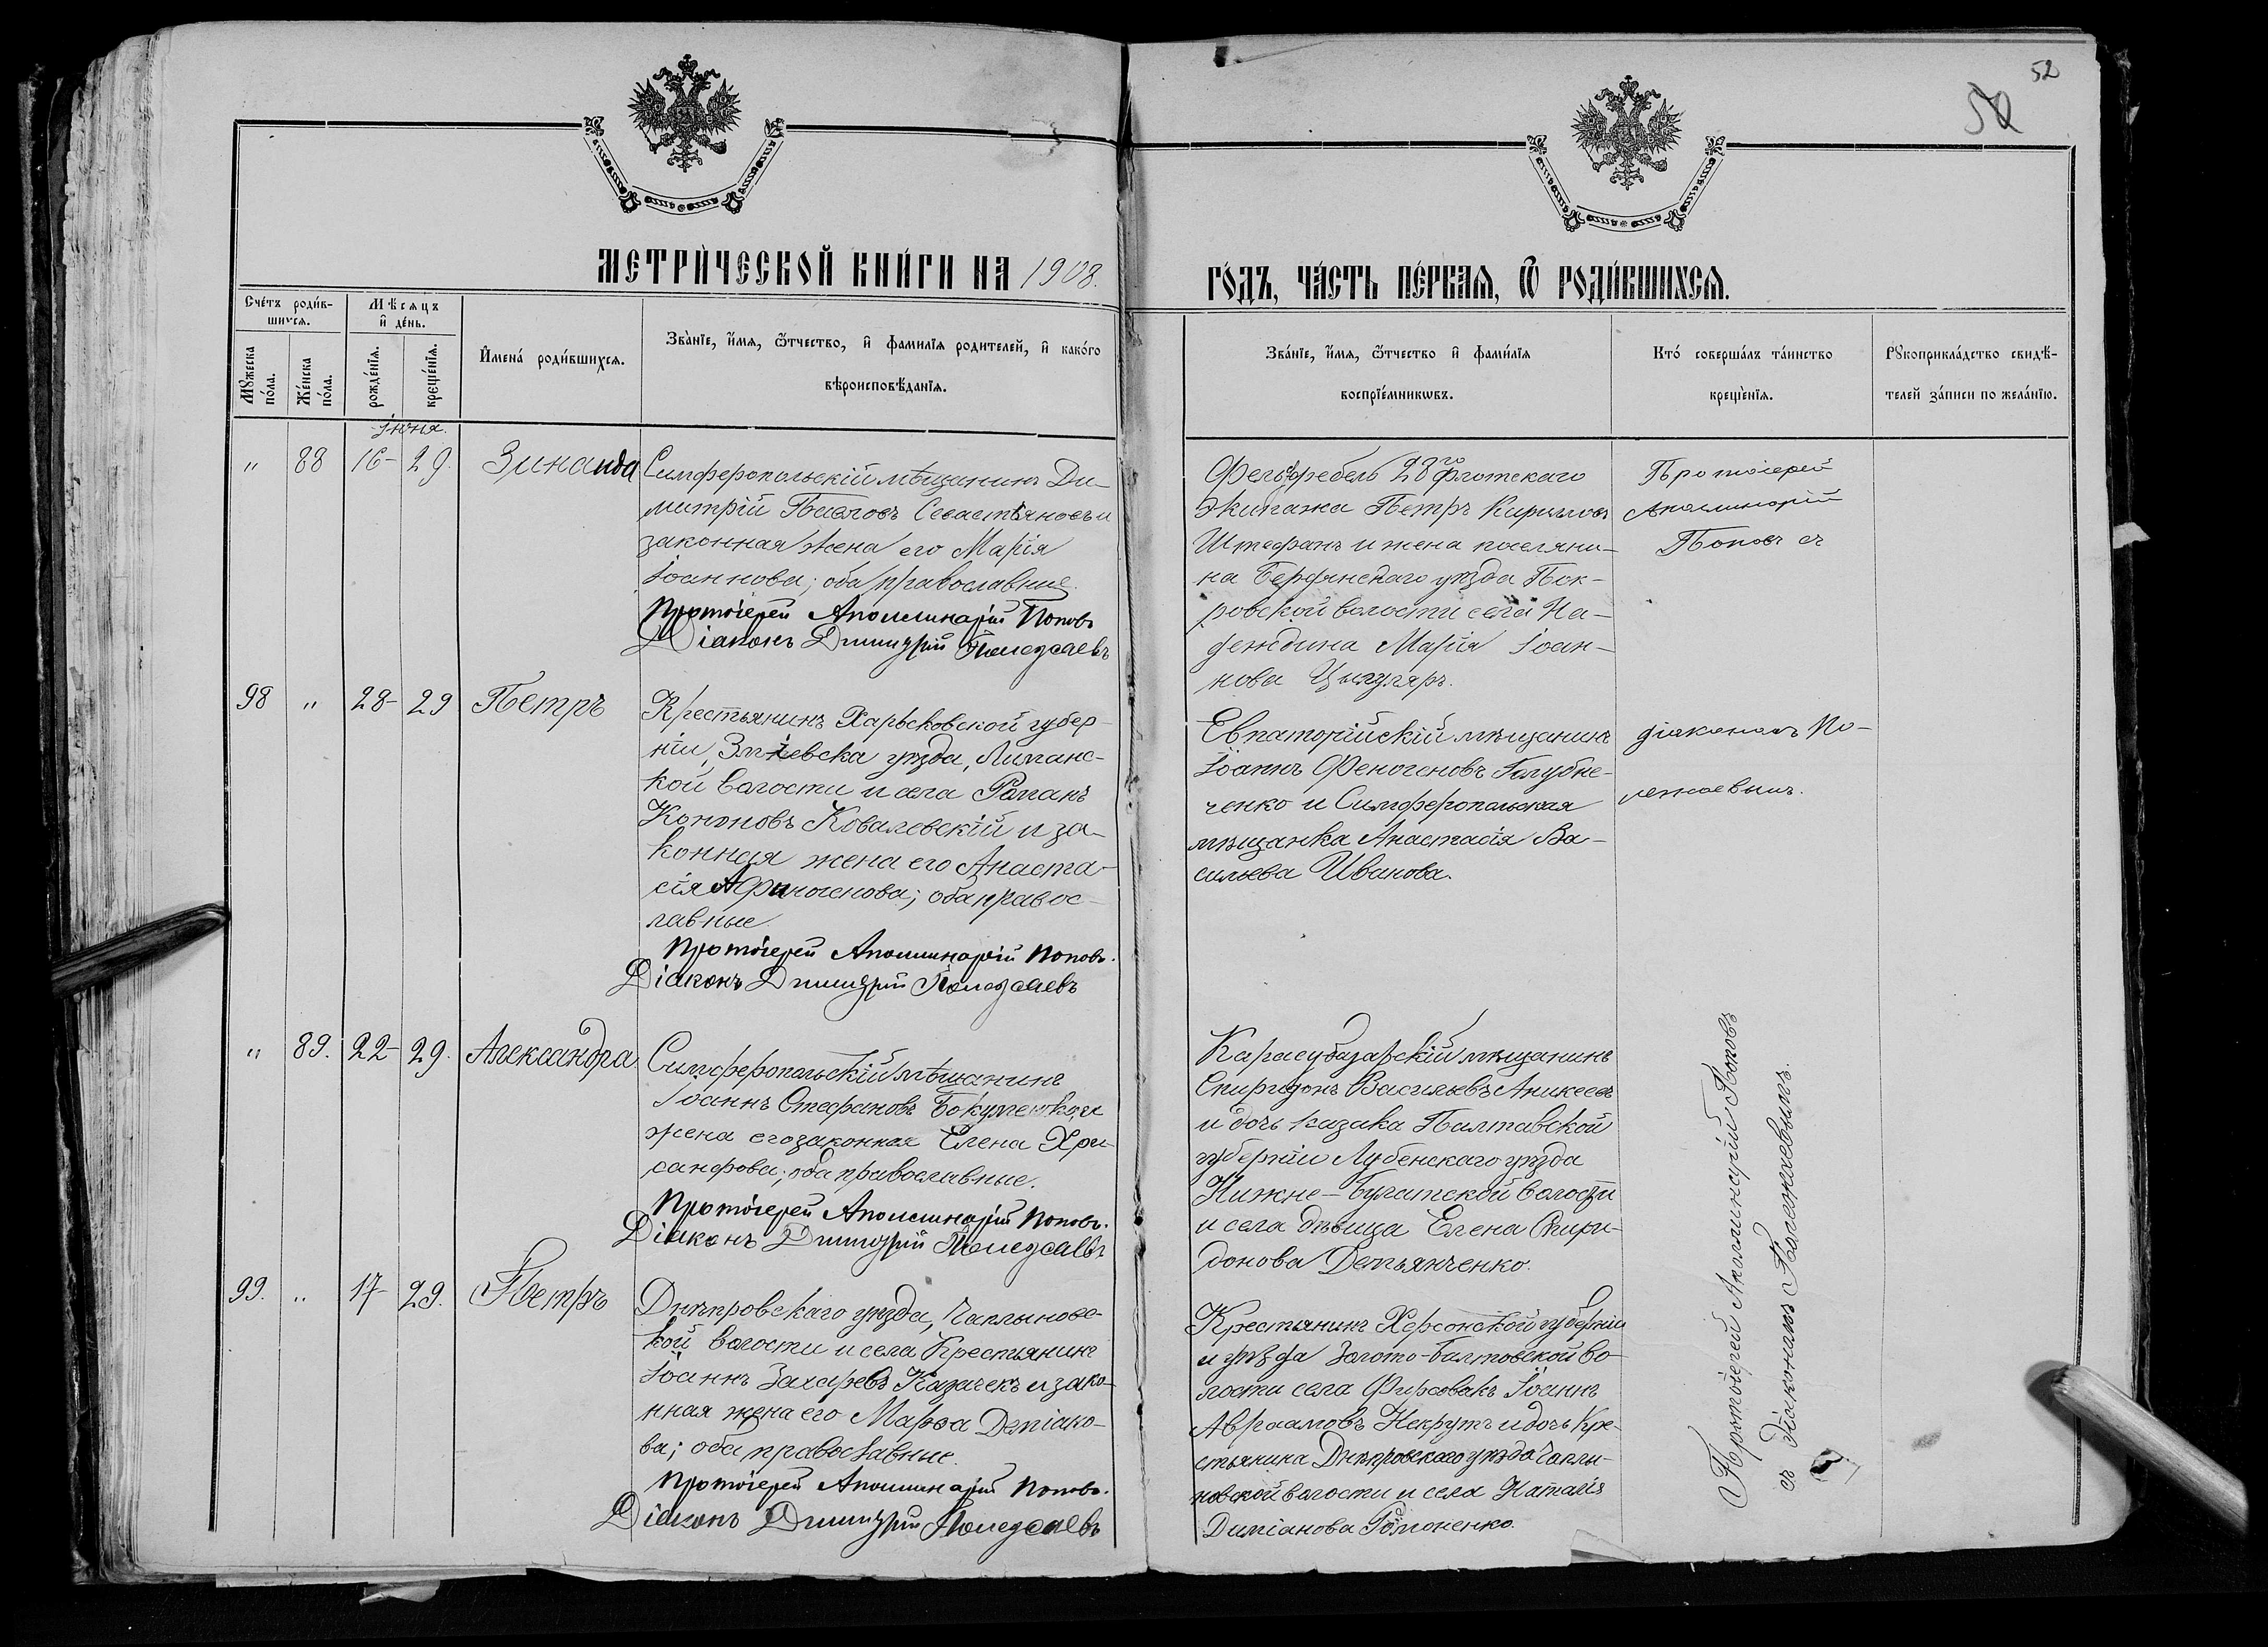 52
52
МЕТРИ́ЧЕСКОЙ КНИ́ГИ НА 1908.
ГО́ДЪ, ЧА́СТЬ ПЕ́РВАЯ, Ѿ РОДИ́ВШИХСЯ.
Сче́тъ роди́в-
шихся.
Мѣ́сяцъ
и де́нь.
Мꙋжеска по́ла.
Же́нска по́ла.
рожде́нїѧ.
креще́нїѧ.
Имена́ роди́вшихсѧ.
Зва́нїе, и́мѧ, ѻ҆́тчество, и҆ фами́лїѧ родителей, и҆ како́гѡ
вѣроисповѣ́данїѧ.
Зва́нїе, и́мѧ, ѻ҆́тчество и҆ фами́лїѧ
воспрїе́мникѡвъ.
Кто́ соверша́лъ та́инство
креще́нїѧ.
Рꙋкоприкла́дство свидѣ́-
телей за́писи по жела́нїю.
Іюня.
" 88 16- 29. Зинаида
Симферопольскій мѣщанинъ Ди-
митрій Павловъ Севастьяновъ и
законная жена его Марія
Іоаннова; оба православные.
Протоіерей Аполлинарій Поповъ
Діаконъ Димитрій Полежаевъ
Фельдфебель 28го флотскаго
Экипажа Петръ Кирилловъ
Штефанъ и жена поселяни-
на Бердянскаго уѣзда Пок-
ровской волости села На-
деждина Марія Іоан-
нова Цыгуляръ.
Протоіерей
Аполлинарій
Поповъ съ
98 " 28- 29 Петръ
Крестьянинъ Харьковской губер-
ніи, Зміевска уѣзда, Лиманс-
кой волости и села Романъ
Кононовъ Ковалевскій и за-
конная жена его Анаста-
сія Афиногенова; оба правос-
лавные
Протоіерей Аполлинарій Поповъ.
Діаконъ Димитрій Полежаевъ
Евпаторійскій мѣщанинъ
Іоаннъ Феногеновъ Голубни-
ченко и Симферопольская
мѣщанка Анастасія Ва-
сильева Иванова.
діакономъ По-
лежаевымъ.
" 89. 22- 29. Александра
Симферопольскій мѣщанинъ
Іоаннъ Стефановъ и
жена его законная Елена Хри-
санфова; оба православные.
Протоіерей Аполлинарій Поповъ.
Діаконъ Димитрій Полежаевъ
Карасубазарскій мѣщанинъ
Спиридонъ Васильевъ Аникеевъ
и дочь казака Полтавской
губерніи Лубенскаго уѣзда
Нижне-Булатской волости
и села дѣвица Елена Спири-
донова Демьянченко.
99. " 17- 29. Петръ
Днѣпровскаго уѣзда, Чаплыновс-
кой волости и села Крестьянинъ
Іоаннъ Захаревъ Казачекъ и зако-
нная жена его Марѳа Деміано-
ва; оба православные.
Протоіерей Аполлинарій Поповъ.
Діаконъ Димитрій Полежаевъ
Крестьянинъ Херсонской губерніи
и уѣзда Золото-Балтовской во-
лости села Фирсовокъ Іоаннъ
Авраамовъ Некрутъ и дочь Кре-
стьянина Днѣпровскаго уѣзда Чапли-
новской волости и села Наталія
Диміанова
Протоіерей Аполлинарій Поповъ
съ Діакономъ Полежаевымъ.